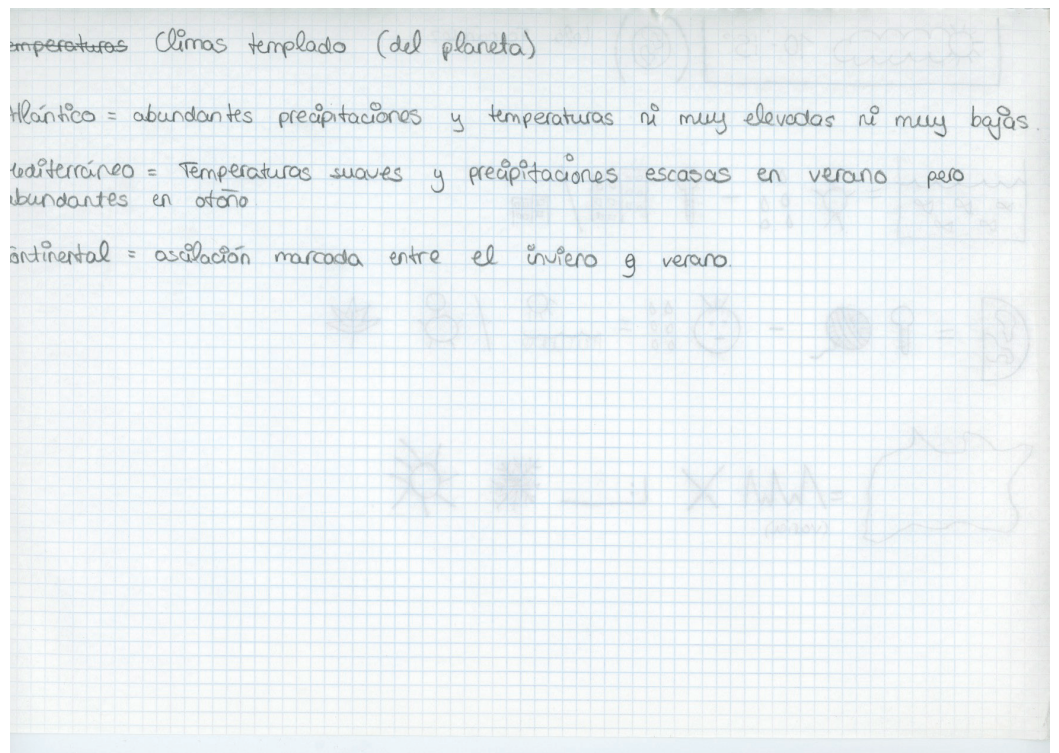 emperaturas Climas templado (del planeta)
tlántico = abundantes precipitaciones y temperaturas ni muy elevadas ni muy bajas.
editerráneo = Temperaturas suaves y precipitaciones escasas en verano pero
bundantes en otoño
ontinental = oscilación marcada entre el inviero y verano.